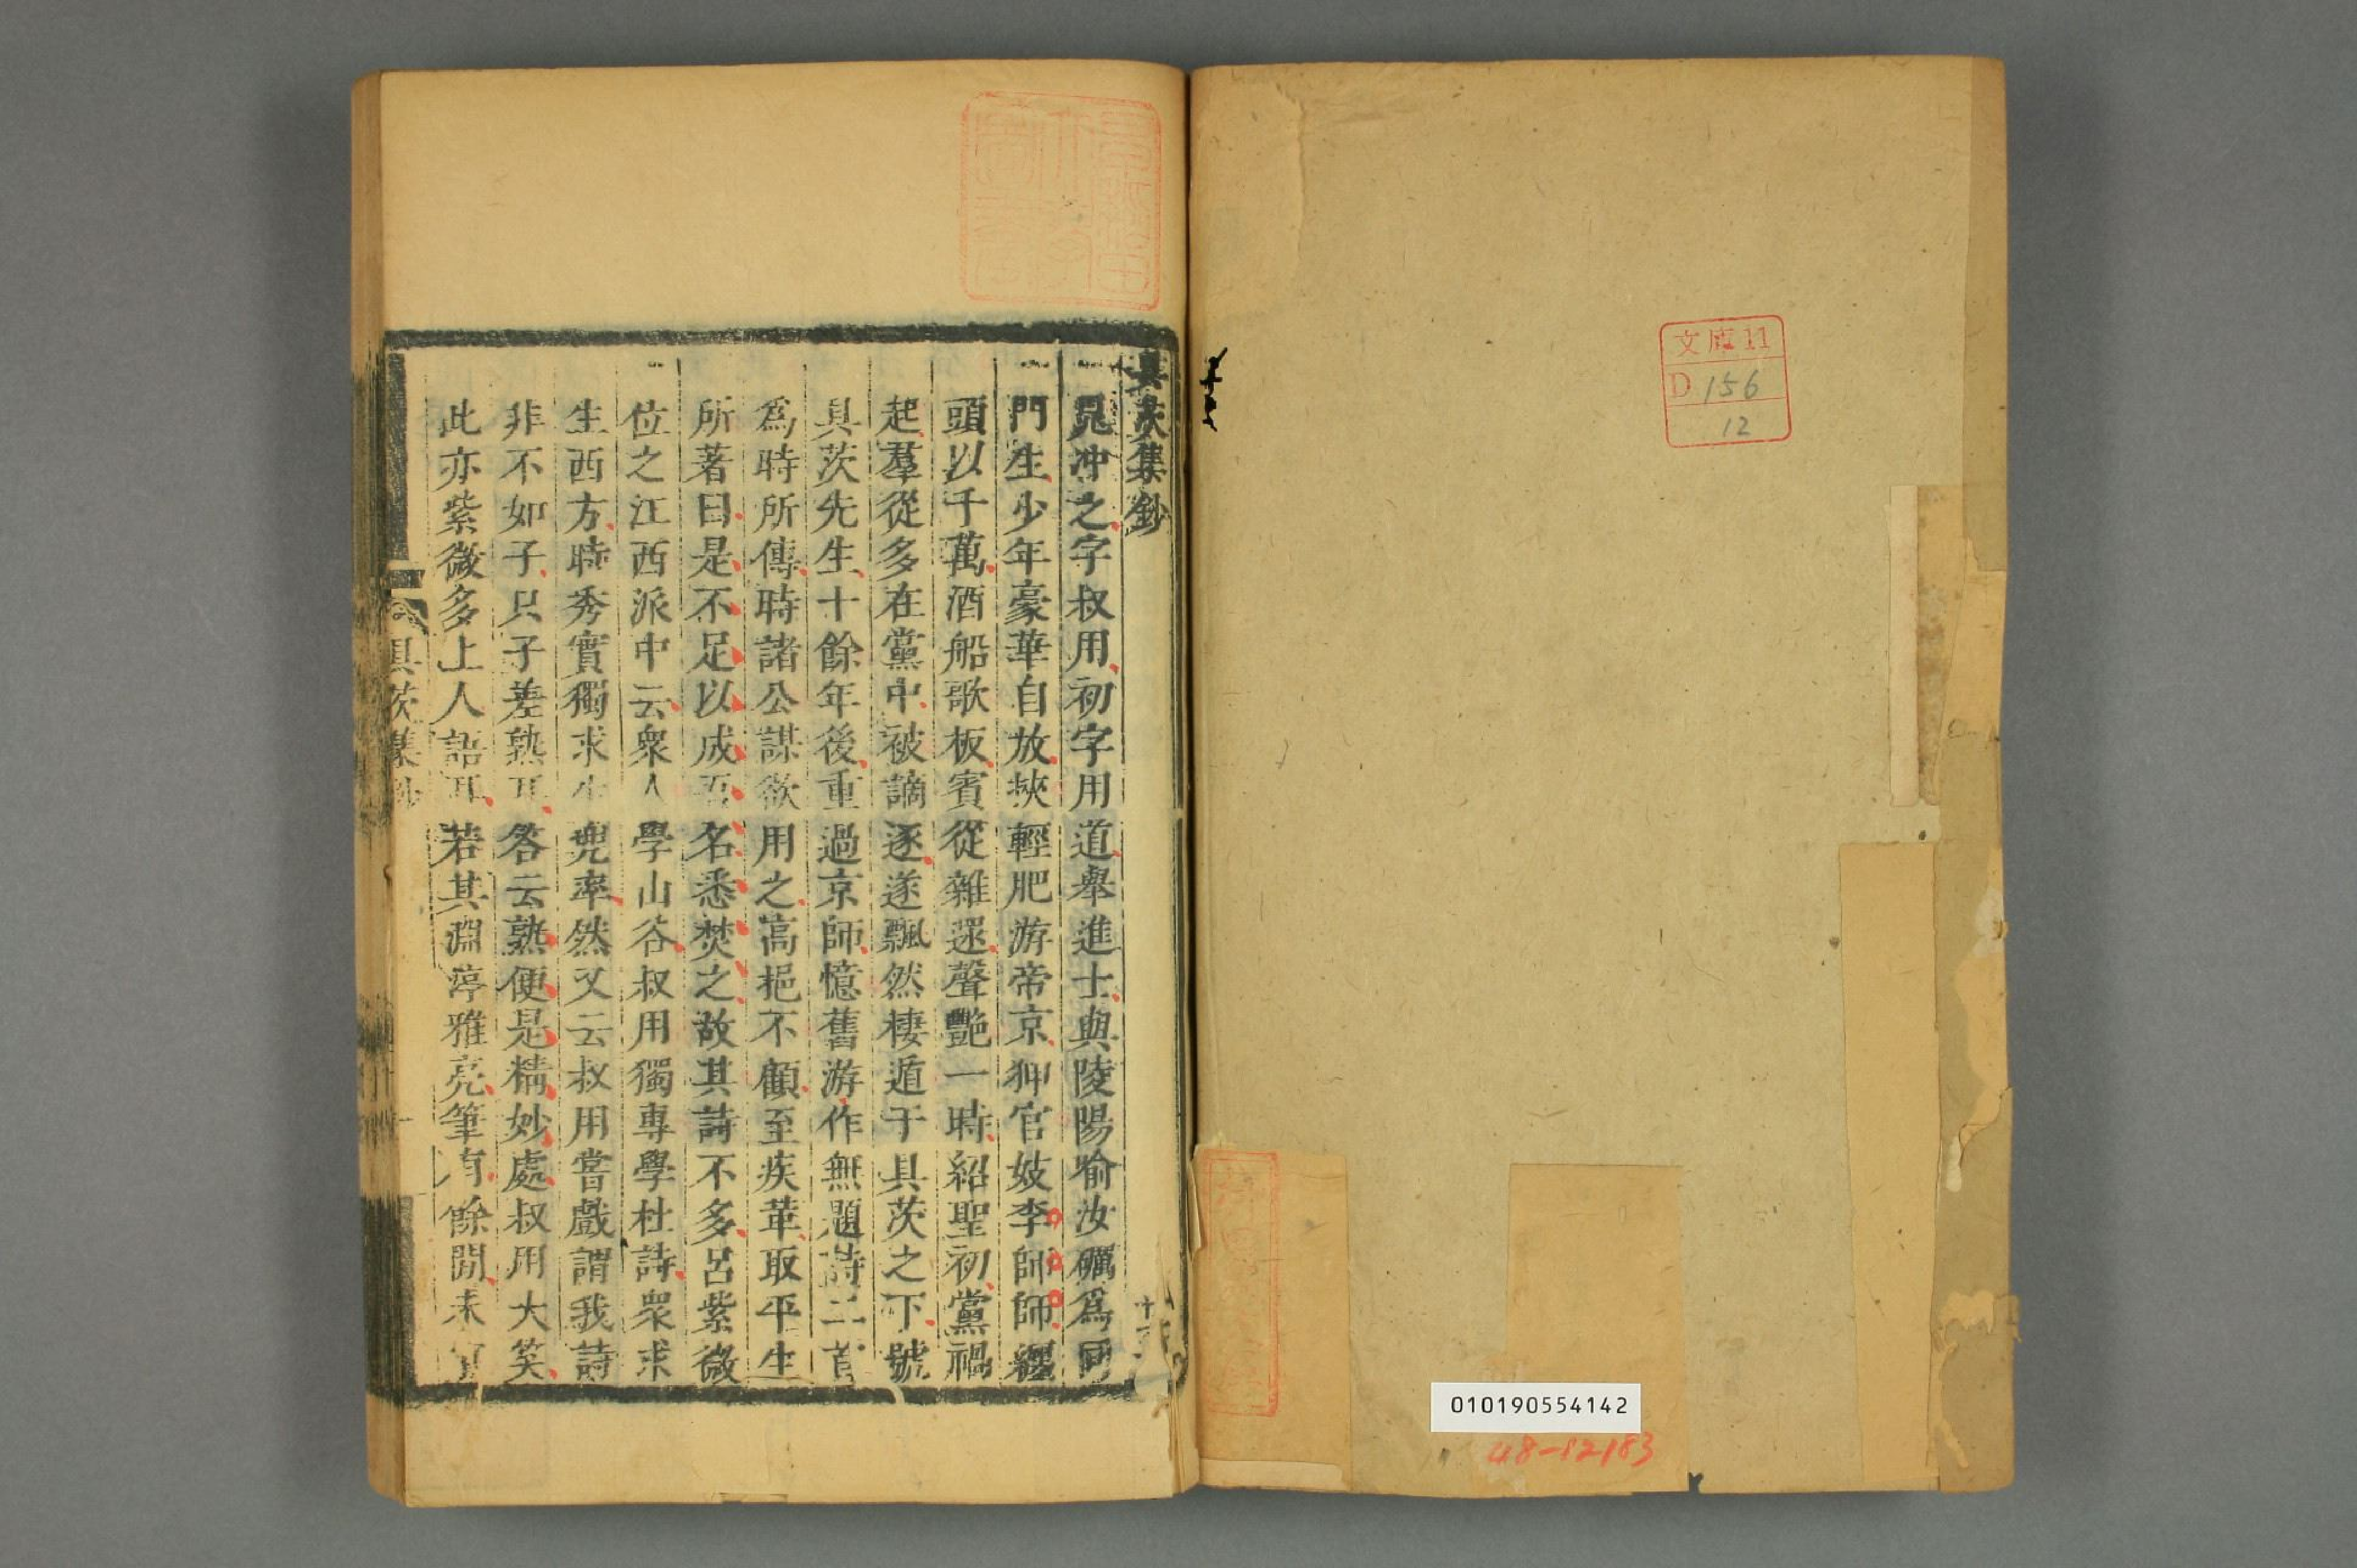 文庫11
D 156
12
010190554142
48-12183
具茨集鈔
晁冲之字叔用初字用道舉進士與陵陽喻汝礪為同
門生少年豪華自放挾輕肥游帝京狎官妓李師師纏
頭以千萬酒船歌板賓從雜還聲艷一時紹聖初黨禍
起羣從多在黨中被謫逐遂飄然棲遁于具茨之下號
具茨先生十餘年後重過京師憶舊游作無題詩二首
為時所傳時諸公謀欲用之高挹不顧至疾革取平生
所著曰是不足以成吾名悉焚之故其詩不多呂紫微
位之江西派中云衆人學山谷叔用獨專學杜詩衆求
生西方時秀實獨求生兜率然又云叔用嘗戲謂我詩
非不如子只子差熟耳答云熟便是精妙處叔用大笑
此亦紫微多上人語耳若其淵渟雅亮筆有餘閒未
具茨集鈔
一